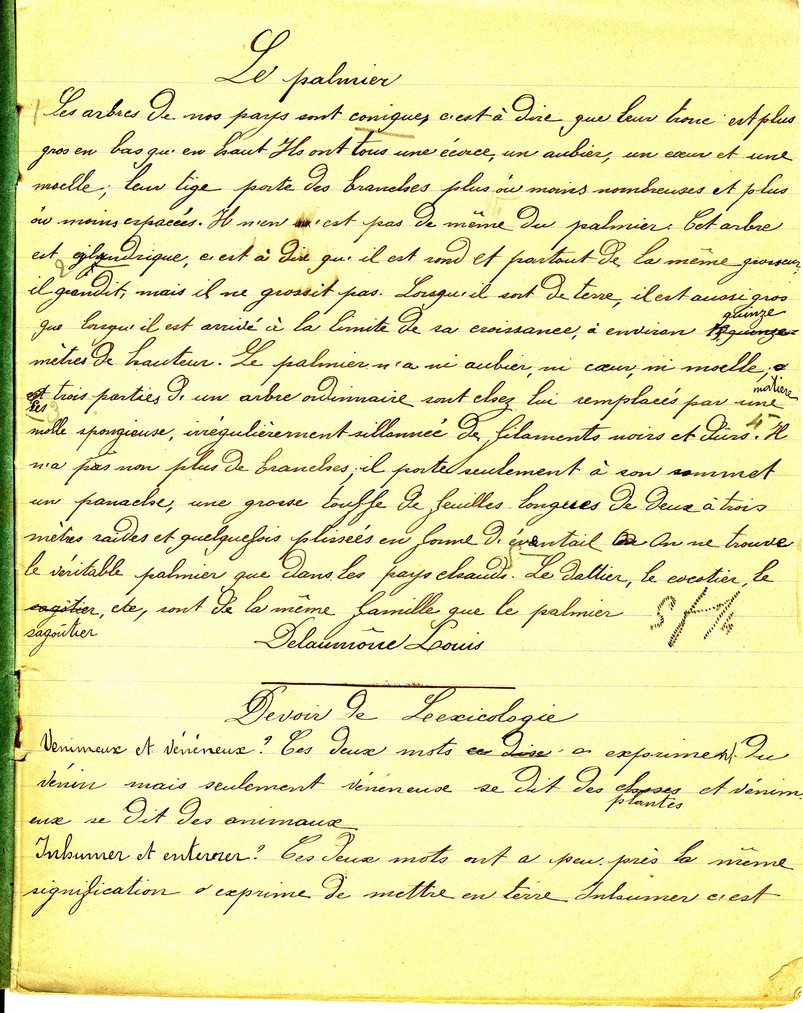 Le palmier
Les arbres de nos pays sont coniques c'est à dire que leur tronc est plus
gros en bas qu'en haut Ils ont tous une écorce, un aubier, un cœur et une
moelle; leur tige porte des branches plus ou moins nombreuses et plus
ou moins espacées. Il n'en est pas de même du palmier. Cet arbre
est cylindrique, c'est à dire qu'il est rond et partout de la même grosseur
il grandit, mais il ne grossit pas. Lorsqu'il sort de terre, il est aussi gros
que lorsqu'il est arrivé à la limite de sa croissance, à environ quinze
mètres de hauteur. Le palmier n'a ni aubier, ni cœur, ni moelle;
les trois parties d'un arbre ordinnaire sont chez lui remplacés par une matière
molle spongieuse, irrégulièrement sillonnée de filaments noirs et durs. Il
n'a pas non plus de branches; il porte seulement à son sommet
un panache, une grosse touffe de feuilles longues de deux à trois
mètres raides et quelquefois plissées en forme d'éventail On ne trouve
le véritable palmier que dans les pays chauds. Le dattier, le cocotier, le
sagôtier, etc, sont de la même famille que le palmier
sagoutier
Delaumône Louis
Devoir de Lexicologie
Venimeux et vénéneux? Ces deux mots expriment du
vénin mais seulement vénéneuse se dit des choses et vénim
plantes
eux se dit des animaux
Inhumer et enterrer? Ces deux mots ont a peu près la même
signification d'exprime de mettre en terre Inhumer c'est